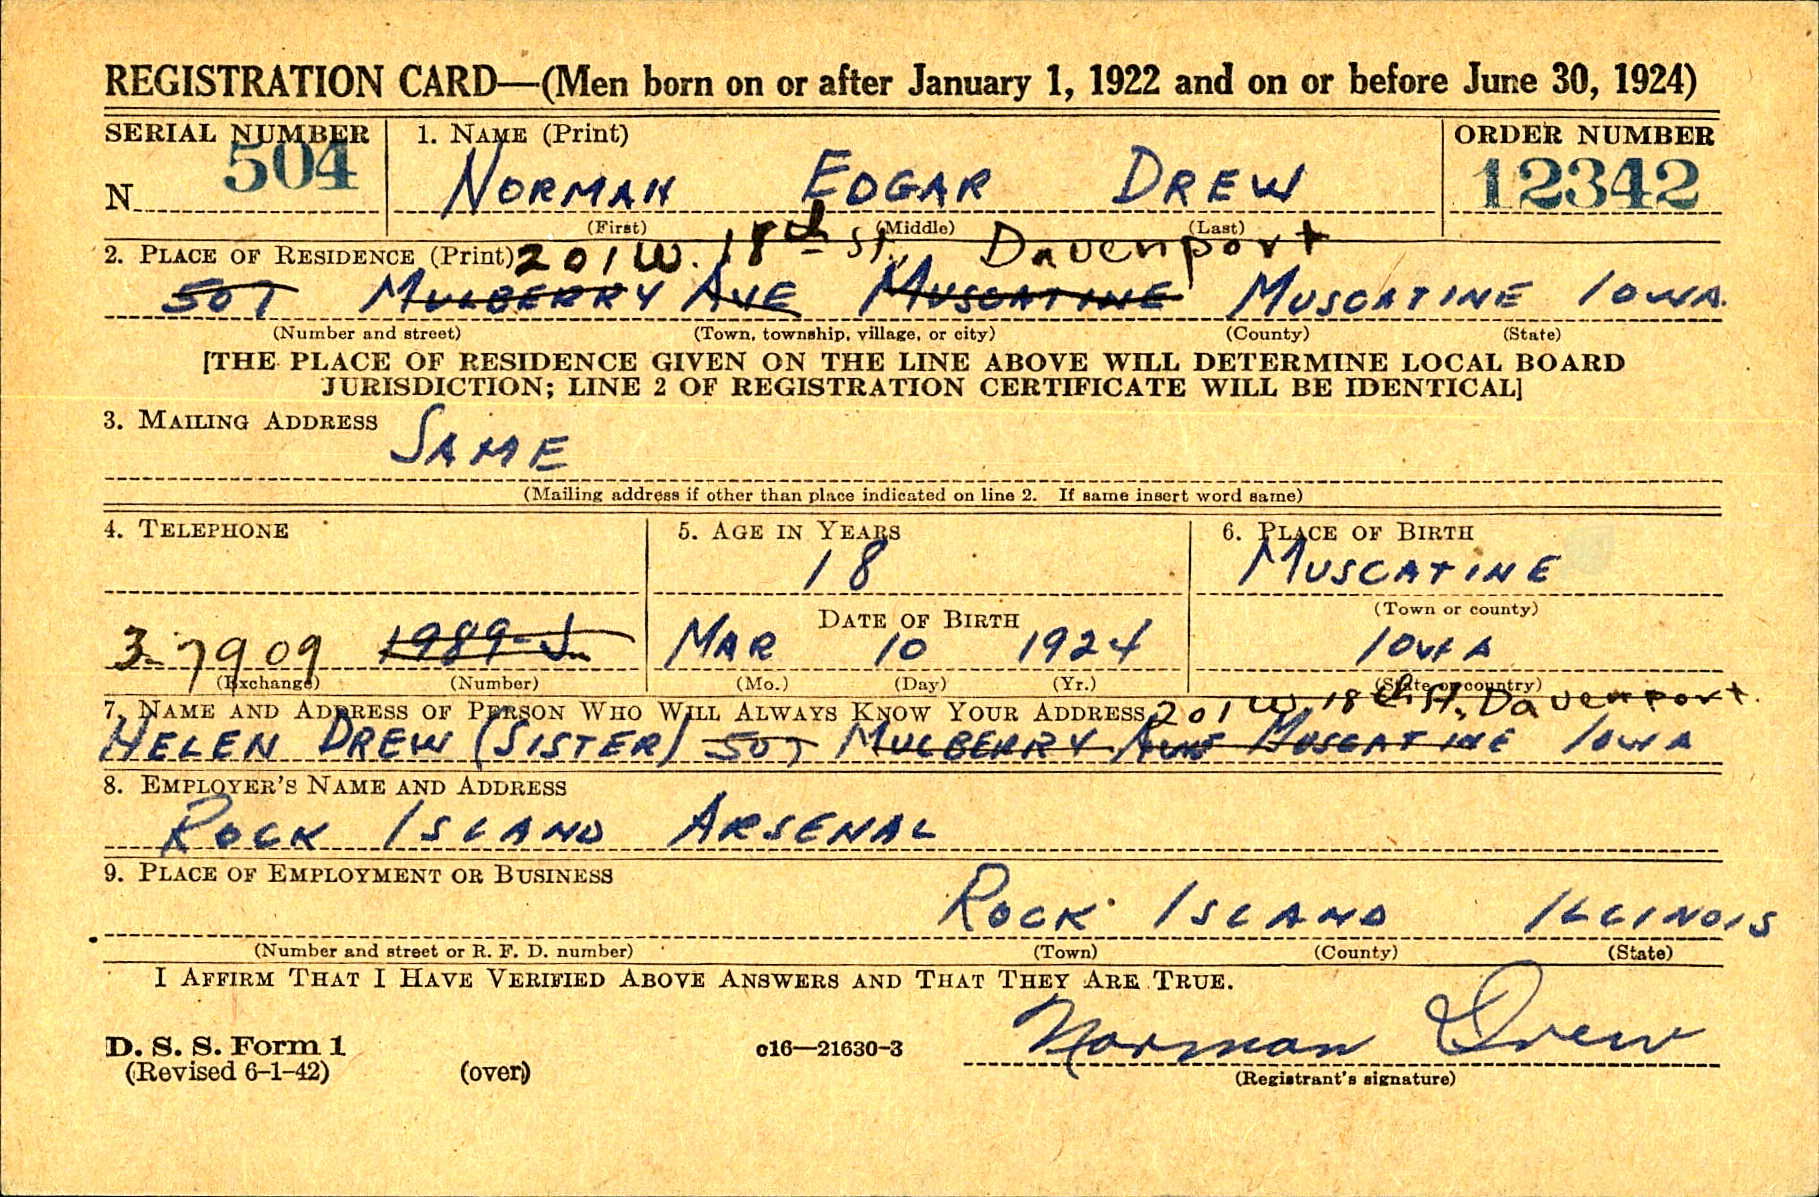 REGISTRATION CARD—(Men born on or after January 1, 1922 and on or before June 30, 1924)
SERIAL NUMBER 1. NAME (Print) ORDER NUMBER
N 504 NORMAN EDGAR DREW 12342
(First) (Middle) (Last)
2. PLACE OF RESIDENCE (Print) 201 W. 18th St., Davenport
507 MULBERRY AVE MUSCATINE MUSCATINE IOWA
(Number and street) (Town, township, village, or city) (County) (State)
[THE PLACE OF RESIDENCE GIVEN ON THE LINE ABOVE WILL DETERMINE LOCAL BOARD
JURISDICTION; LINE 2 OF REGISTRATION CERTIFICATE WILL BE IDENTICAL]
3. MAILING ADDRESS
SAME
(Mailing address if other than place indicated on line 2. If same insert word same)
4. TELEPHONE 5. AGE IN YEARS 6. PLACE OF BIRTH
18 MUSCATINE
(Town or county)
DATE OF BIRTH
3-7909 1989-J MAR 10 1924 IOWA
(Exchange) (Number) (Mo.) (Day) (Yr.) (State or country)
7. NAME AND ADDRESS OF PERSON WHO WILL ALWAYS KNOW YOUR ADDRESS 201 W. 18th St., Davenport.
HELEN DREW (SISTER) 507 MULBERRY AVE MUSCATINE IOWA
8. EMPLOYER'S NAME AND ADDRESS
ROCK ISLAND ARSENAL
9. PLACE OF EMPLOYMENT OR BUSINESS
ROCK ISLAND ILLINOIS
(Number and street or R. F. D. number) (Town) (County) (State)
I AFFIRM THAT I HAVE VERIFIED ABOVE ANSWERS AND THAT THEY ARE TRUE.
Norman Drew
D. S. S. Form 1 c16—21630-3
(Revised 6-1-42) (over) (Registrant's signature)